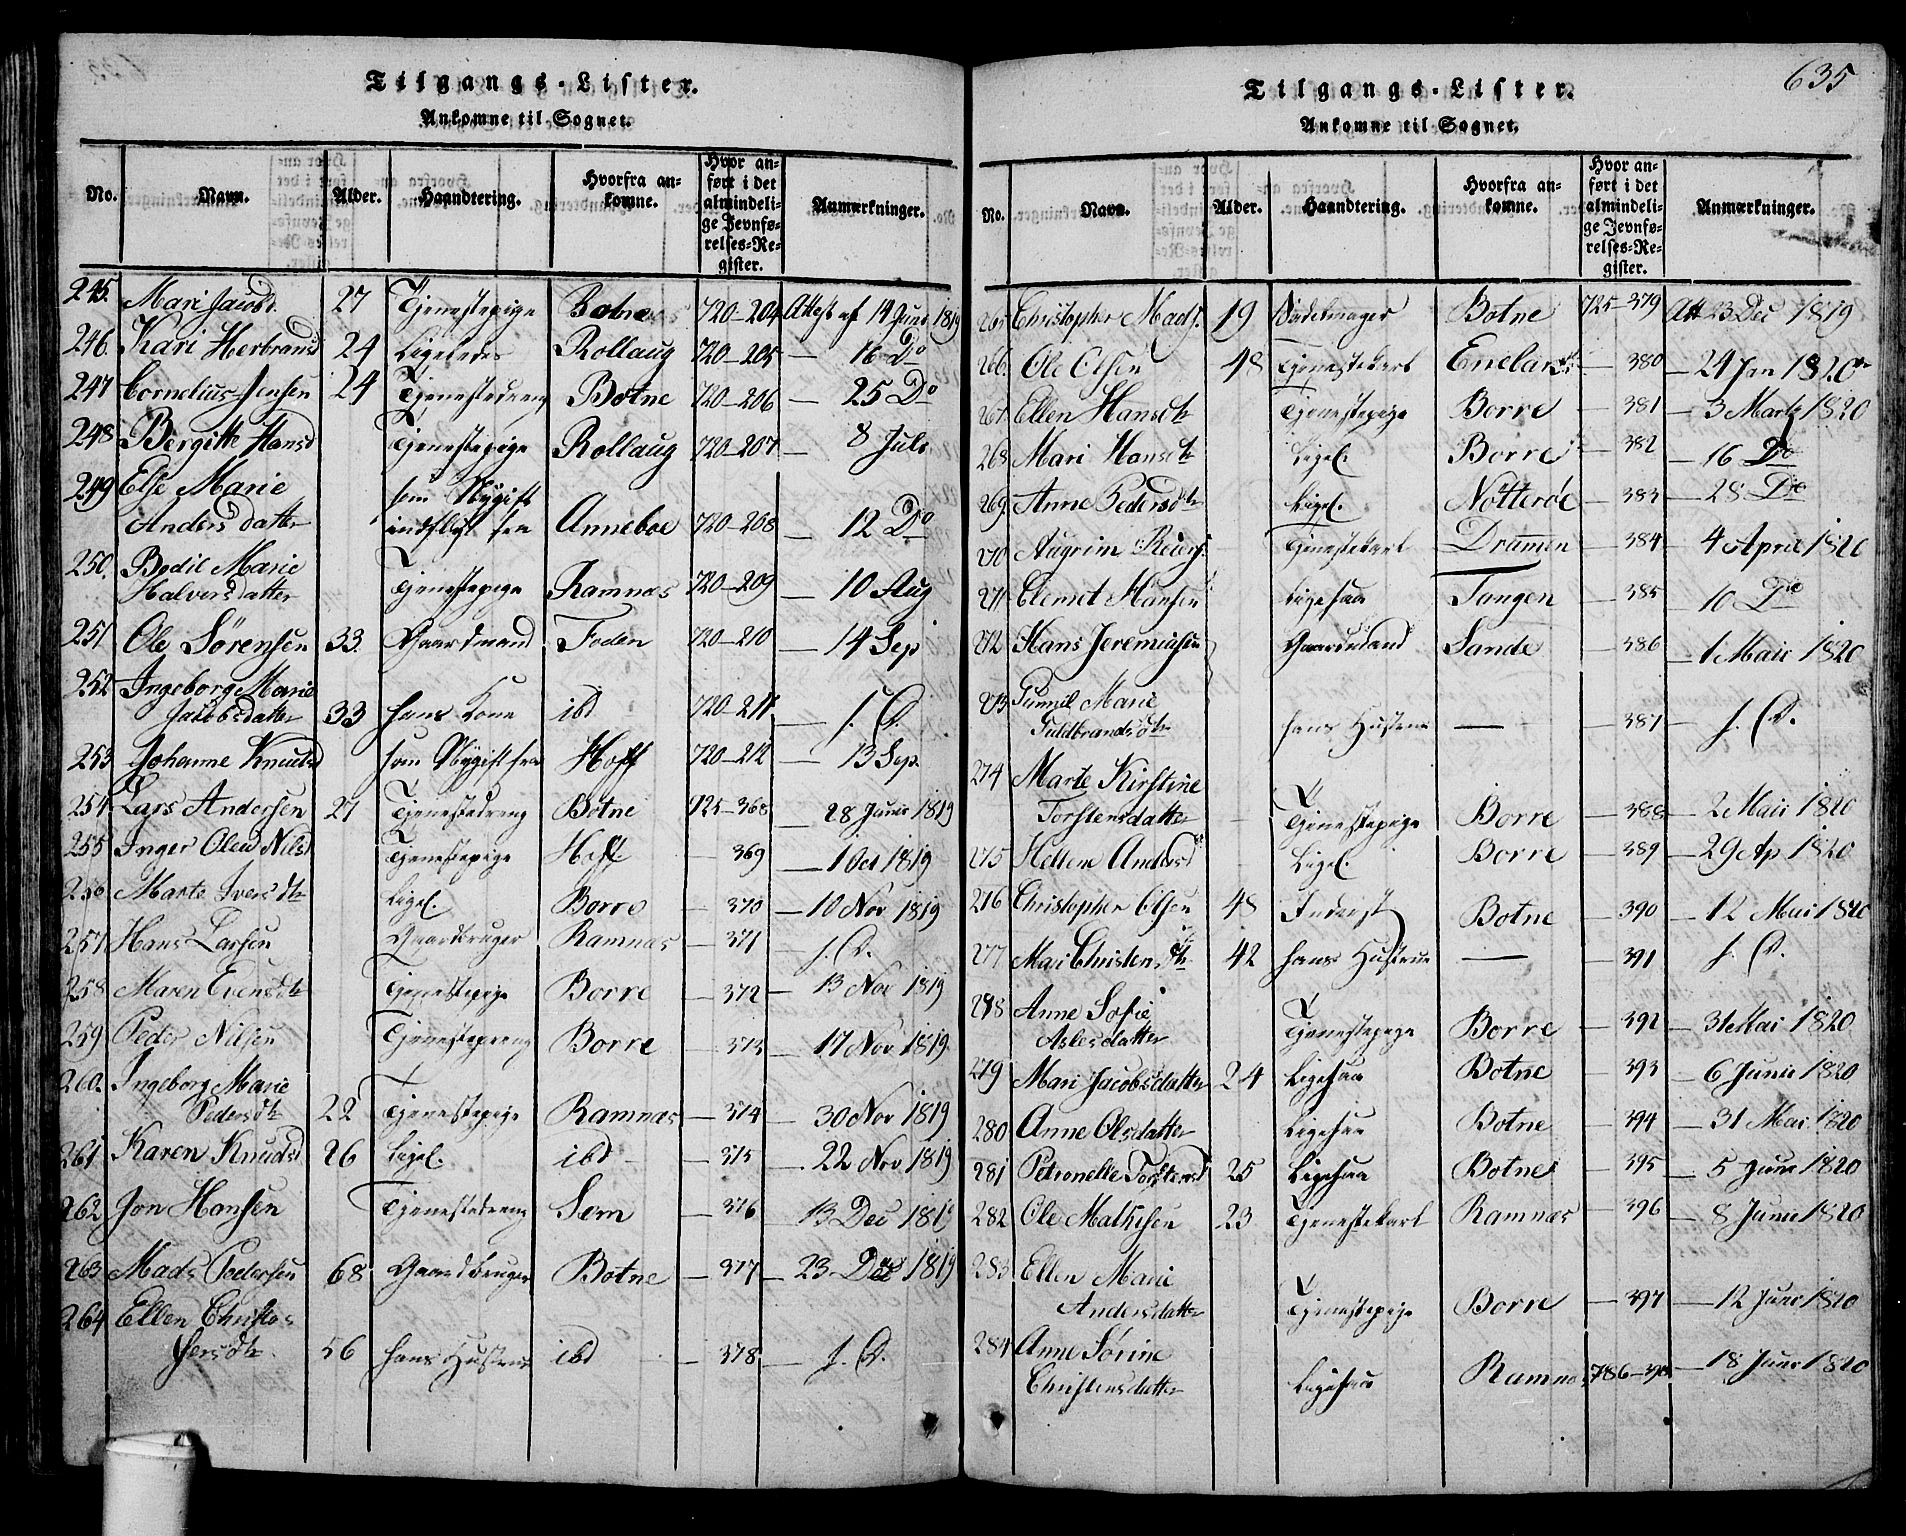 Tilgangs-Lister.
Ankomne til Sognet.
No. Navn. Alder. Haandtering. Hvorfra ankomne. Hvor anført i det almindelige Jevnførelses-Register. Anmærkninger.
245. Mari Jacobd 27 Tjenestepige Botne 720-204 Attest af 14 Juni 1819
246. Kari Herbrandsd 24 Ligeledes Rollaug 720-205 — 16 Do
247 Cornelius Jensen 24 Tjenestedreng Botne 720-206 — 25 Do
248 Bergitte Hansd Tjenestepige Rollaug 720-207 — 8 Juli
249 Else Marie
Anders datter som Nygift indflyt fra Anneboe 720-208 — 12 Do
250. Bodil Marie
Halvorsdatter Tjenestepige Ramnas 720-209 — 10 Aug
251 Ole Sørensen 33. Gaardmand Foden 720-210 — 14 Sep
252 Ingeborg Marie
Jacobsdatter 33 hans Kone ibd 720-211 — s. D.
253 Johanne Knutsd som Nygift fra Hoff 720-212 — 13 Sep.
254 Lars Andersen 27 Tjenestedreng Botne 725-368 — 28 Juni 1819
255 Inger Olea Nilsd Tjenestepige Hoff — 369 — 1 Oct 1819
256 Marte Iversdtr Ligel. Borre — 370 — 10 Nov 1819
257 Hans Larsen Gaardbruger Ramnas — 371 s. D.
258 Maren Evensdtr Tjenestepige Borre — 372 — 13 Nov 1819
259 Peder Nilsen Tjenestedreng Borre — 373 — 17 Nov 1819.
260. Ingeborg Marie
Pedersdtr 22 Tjenestepige Ramnas — 374 — 30 Nov 1819
261 Karen Knudsd 26 Ligel. ibd — 375 — 22 Nov 1819
262 Jon Hansen Tjenestedreng Sem — 376 — 13 Dec 1819
263 Mads Pedersen 68 Gaardbruger Botne — 377 — 23 Dec 1819
264 Ellen Christof
fersdtr. 56 hans Hustrue ibd — 378 — s. D.
635
Tilgangs-Lister.
Ankomne til Sognet.
No. Navn. Alder. Haandtering. Hvorfra ankomne. Hvor anført i det almindelige Jevnførelses-Register. Anmærkninger.
265 Christopher Mads. 19 Sadelmager Botne 725-379 Att 23 Dec 1819
266. Ole Olsen 48 Tjenestekarl — 380 — 24 Jan 1820
267 Ellen Hansdtr Tjenestepige Borre — 381 — 3 Marts 1820
268 Mari Hansdtr Ligel. Borre — 382 — 16 Do
269. Anne Pedersdtr Ligel. Nøtterøe — 383 — 28 Do
270 Augrim Reiers. Tjenestekarl Dramen — 384 — 4 April 1820
271 Clemet Hansen Ligesaa Tangen — 385 — 10 Do
272 Hans Jeremiasen Gaardmand Sande — 386 — 1 Mai 1820
273 Gunnil Marie
Guldbrandsdtr hans Hustrue — — 387 — s. D.
274 Marte Kirstine
Torstensdatter Tjenestepige Borre — 388 — 2 Maii 1820
275 Hellene Andersd Ligel. Borre — 389 — 29 Ap 1820
276 Christopher Olsen 48 Inderst Botne — 390 — 12 Mai 1820
277 Mari Christensdtr 42 hans Hustrue — — 391 — s. D.
278 Anne Sofie
Aslesdatter Tjenestepige Borre — 392 — 31 Mai 1820
279 Mari Jacobsdatter 24 Ligesaa Botne — 393 — 6 Junii 1820
280 Anne Olsdatter Ligesaa Botne — 394 — 31 Mai 1820
281 Petronelle Torstensd 25 Ligesaa Botne — 395 — 5 Juni 1820
282 Ole Mathisen 23 Tjenestekarl Ramnæs — 396 — 8 Junii 1820
283 Ellen Marie
Andersdatter Tjenestepige Borre — 397 — 12 Juni 1820
284 Anne Sørine
Christensdatter Ligesaa Ramnas — 18 Juni 1820